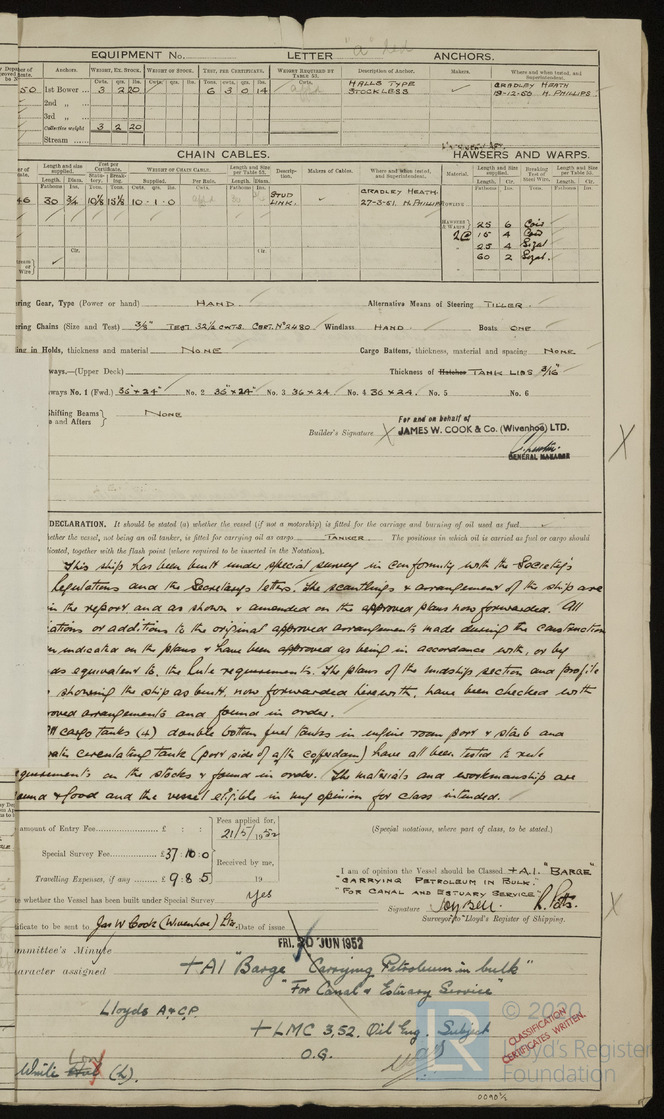 EQUIPMENT No. LETTER "a" ANCHORS.
Anchors. WEIGHT, EX. STOCK. WEIGHT OF STOCK. TEST, PER CERTIFICATE. WEIGHT REQUIRED BY TABLE 53. Description of Anchor. Makers. Where and when tested, and Superintendent.
Cwts. qrs. lbs. Cwts. qrs. lbs. Tons. cwts. qrs. lbs. Cwts.
50 1st Bower 3 2 20 6 3 0 14 HALLS TYPE STOCKLESS CRADLEY HEATH 19-12-50 H. PHILLIPS
2nd „
3rd „
Collective weight 3 2 20
Stream
CHAIN CABLES. HAWSERS AND WARPS.
Length and size supplied. Test per Certificate. WEIGHT OF CHAIN CABLE. Length and Size per Table 53. Description. Makers of Cables. Where and when tested, and Superintendent. Material. Length and Size supplied. Breaking Test of Steel Wire. Length and Size per Table 53.
Length. Diam. Statutory. Breaking. Supplied. Per Rule. Length. Diam. Length. Cir. Length. Cir.
Fathoms Ins. Tons. Tons. Cwts. qrs. lbs. Cwts. Fathoms Ins. Fathoms Ins. Tons. Fathoms Ins.
46 30 3/4 10 1/8 15 1/8 10 - 1 - 0 STUD LINK. CRADLEY HEATH. 27-3-51. H. PHILLIPS
HAWSERS & WARPS 25 6 Coir
15 4 Coir
25 4 Sizal
60 2 Sizal.
ring Gear, Type (Power or hand) HAND Alternative Means of Steering TILLER
ering Chains (Size and Test) 3/8" TEST 32 1/2 CWTS. CERT. No 2480 Windlass HAND Boats ONE
ling in Holds, thickness and material NONE Cargo Battens, thickness, material and spacing NONE
ways.—(Upper Deck) Thickness of Hatches TANK LIDS 3/16"
ways No. 1 (Fwd.) 36" x 24" No. 2 36" x 24" No. 3 36 x 24 No. 4 36 x 24. No. 5 No. 6
Shifting Beams and Afters NONE
Builder's Signature X For and on behalf of
JAMES W. COOK & Co. (Wivenhoe) LTD.
GENERAL MANAGER
X
DECLARATION. It should be stated (a) whether the vessel (if not a motorship) is fitted for the carriage and burning of oil used as fuel
ether the vessel, not being an oil tanker, is fitted for carrying oil as cargo TANKER. The positions in which oil is carried as fuel or cargo should
licated, together with the flash point (where required to be inserted in the Notation).
This ship has been built under special survey in conformity with the Society's
Regulations and the Secretarys letters. The scantlings & arrangement of the ship are
in the report and as shown & amended on the approved plans now forwarded. All
ations or additions to the original approved arrangements made during the construction
n indicated on the plans & have been approved as being in accordance with, or by
as equivalent to, the rule requirements. The plans of the midship section and profile
showing the ship as built, now forwarded herewith, have been checked with
roved arrangements and found in order.
cargo tanks (4) double bottom fuel tanks in engine room port & starb and
circulating tank (port side of aftr cofferdam) have all been tested to rule
quirements on the stocks & found in order. The materials and workmanship are
ound & good and the vessel eligible in my opinion for class intended.
amount of Entry Fee £ : : Fees applied for, 21/5/1952 (Special notations, where part of class, to be stated.)
Special Survey Fee £37 10 0 Received by me,
Travelling Expenses, if any £ 9 8 5 19
I am of opinion the Vessel should be Classed +A1. "BARGE"
"CARRYING PETROLEUM IN BULK"
"FOR CANAL AND ESTUARY SERVICE"
te whether the Vessel has been built under Special Survey Yes
Signature R. Potts.
Surveyor to Lloyd's Register of Shipping.
X
ificate to be sent to Jas W Cook (Wivenhoe) Ltd. Date of issue
mmittee's Minute FRI. 20 JUN 1952
aracter assigned +A1 "Barge Carrying Petroleum in bulk"
"For Canal & Estuary Service"
Lloyds A & C.P.
+LMC 3,52. Oil Eng. Subject
O.G.
Write (L).
CLASSIFICATION CERTIFICATES WRITTEN.
LR
© 2020
Lloyd's Register
Foundation